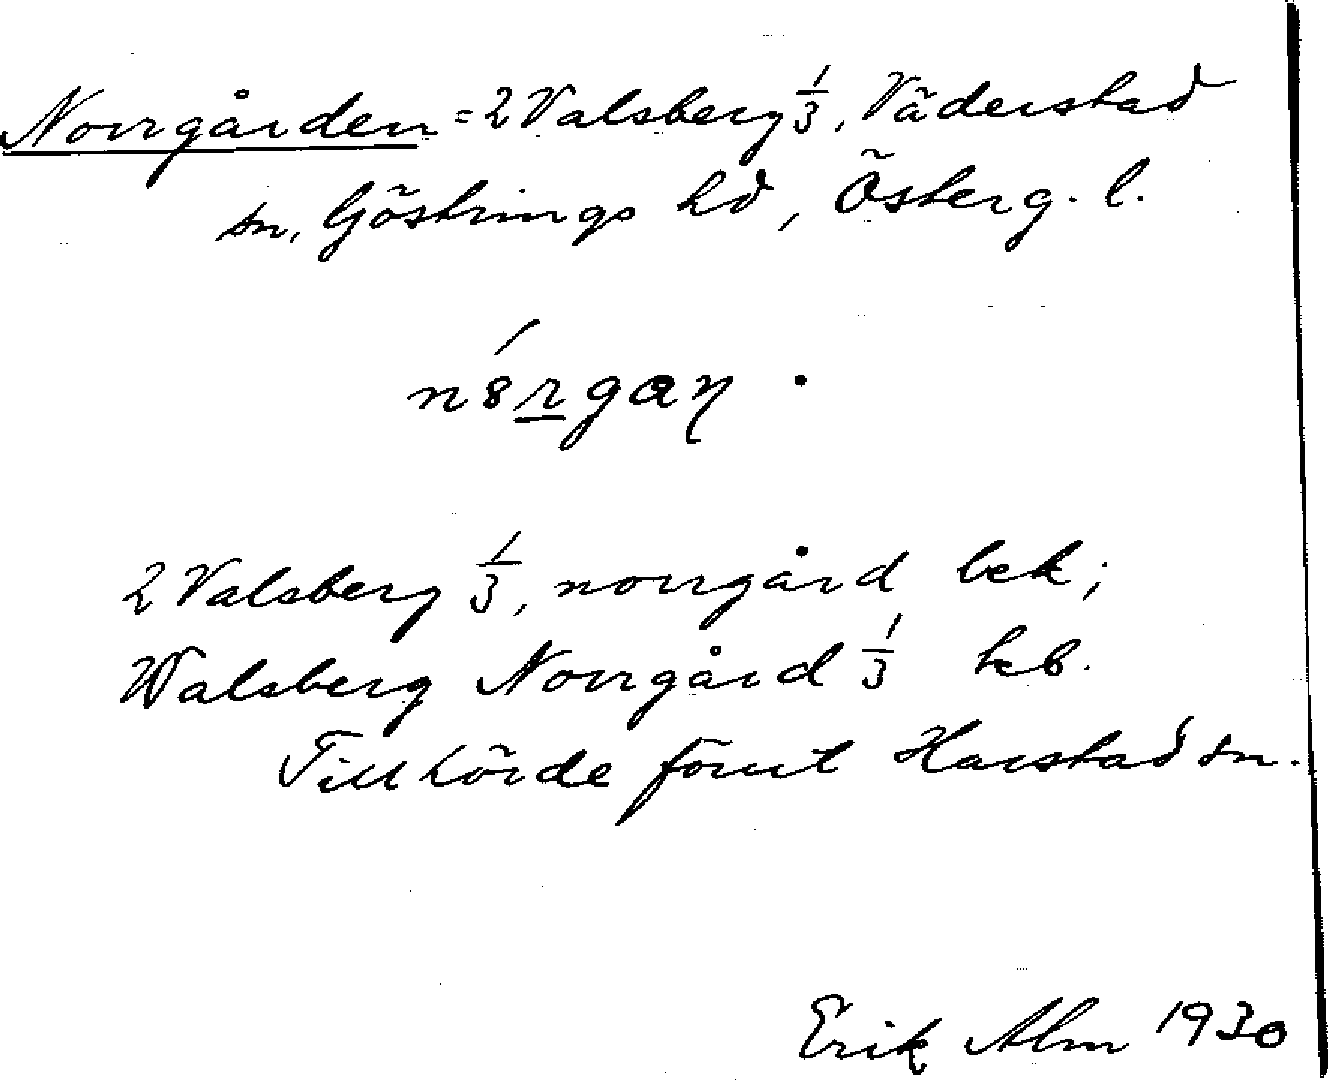 Norrgården = 2 Valsberg 1/3, Väderstad
sn, Göstrings hd, Österg. l.
n8́rgaŋ .
2 Valsberg 1/3, norrgård lek;
Walsberg Norrgård 1/3 kb.
Tillhörde förut Harstad sn.
Erik Alm 1930